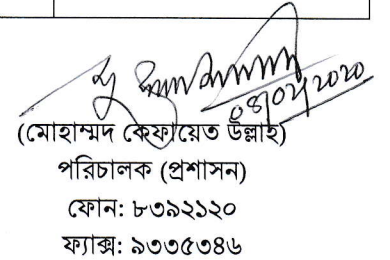 ০৪/০২/২০২০
(মোহাম্মদ কেফায়েত উল্লাহ)
পরিচালক (প্রশাসন)
ফোন: ৮৩৯২১২০
ফ্যাক্স: ৯৩৩৫৩৪৬